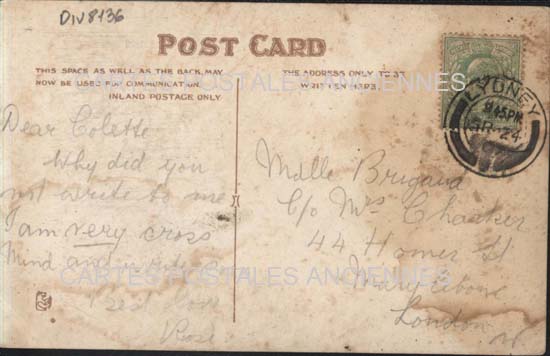 DIV8136
POST CARD
THIS SPACE AS WELL AS THE BACK MAY
NOW BE USED FOR COMMUNICATION.
INLAND POSTAGE ONLY
THE ADDRESS ONLY TO BE
WRITTEN HERE.
LYDNEY
9.45PM
24
Dear Colette
Why did you
not write to me
I am very cross
Mind and write
Best love
Rose
Mdlle Brigaud
C/o Mrs Chacker
44 Homer St
Marylebone
London
W
CARTES POSTALES ANCIENNES
CARTES POSTALES ANCIENNES